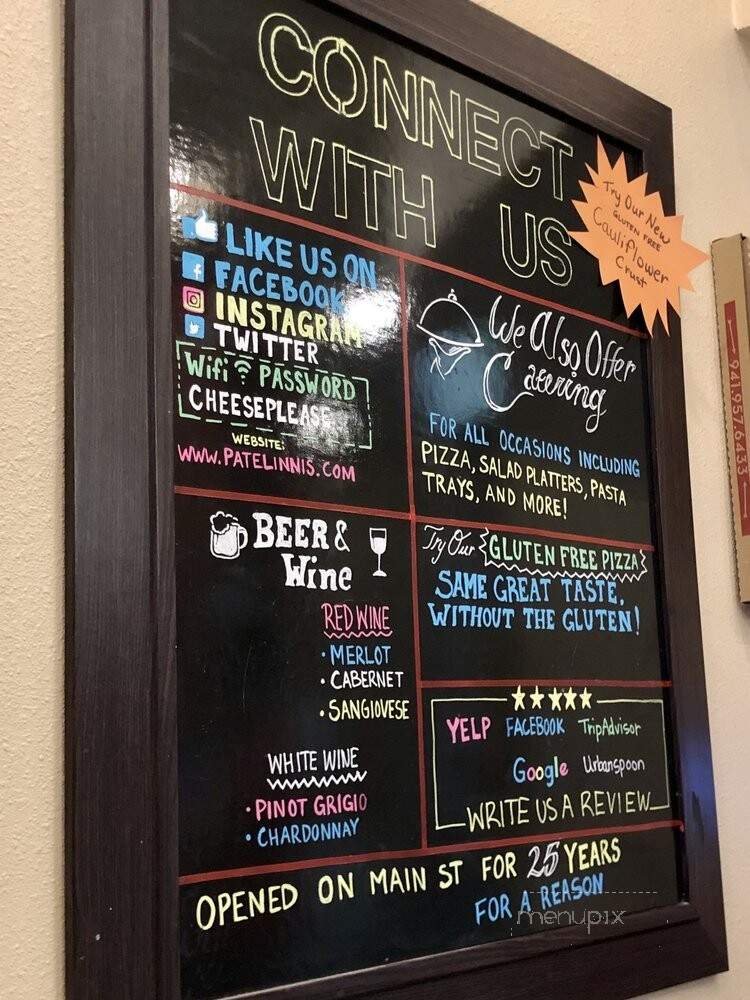 CONNECT
WITH US
Try Our New
GLUTEN FREE
Cauliflower
Crust
LIKE US ON
FACEBOOK
INSTAGRAM
TWITTER
Wifi PASSWORD
CHEESEPLEASE
WEBSITE:
WWW.PATELINNIS.COM
We Also Offer
Catering
FOR ALL OCCASIONS INCLUDING
PIZZA, SALAD PLATTERS, PASTA
TRAYS, AND MORE!
BEER &
Wine
RED WINE
• MERLOT
• CABERNET
• SANGIOVESE
WHITE WINE
• PINOT GRIGIO
• CHARDONNAY
Try Our GLUTEN FREE PIZZA
SAME GREAT TASTE,
WITHOUT THE GLUTEN!
YELP FACEBOOK TripAdvisor
Google Urbanspoon
WRITE US A REVIEW
OPENED ON MAIN ST FOR 25 YEARS
FOR A REASON
941.957.6433
menupix